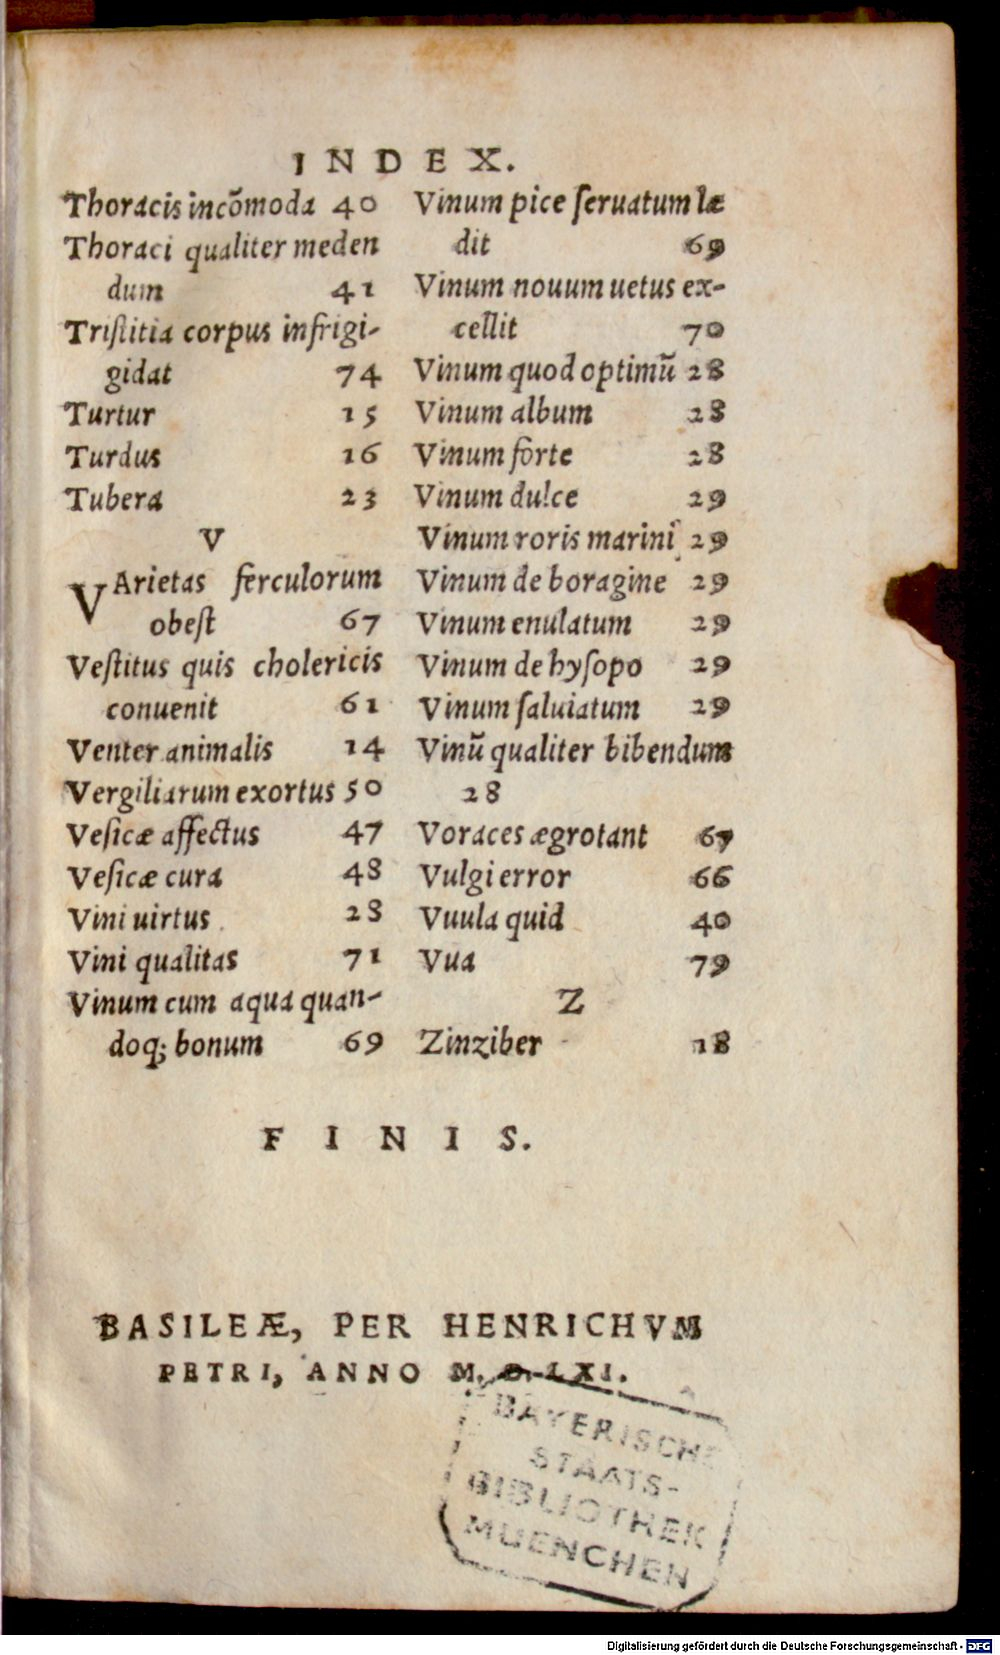 INDEX.
Thoracis incõmoda 40
Thoraci qualiter meden
dum 41
Tristitia corpus infrigi-
gidat 74
Turtur 15
Turdus 16
Tubera 23
V
VArietas ferculorum
obest 67
Vestitus quis cholericis
conuenit 61
Venter animalis 14
Vergiliarum exortus 50
Vesicæ affectus 47
Vesicæ cura 48
Vini uirtus 28
Vini qualitas 71
Vinum cum aqua quan-
doq; bonum 69
Vinum pice ſeruatum læ
dit 69
Vinum nouum uetus ex-
cellit 70
Vinum quod optimũ 28
Vinum album 28
Vinum forte 28
Vinum dulce 29
Vinum roris marini 29
Vinum de boragine 29
Vinum enulatum 29
Vinum de hyſopo 29
Vinum ſaluiatum 29
Vinũ qualiter bibendum
28
Voraces ægrotant 67
Vulgi error 66
Vuula quid 40
Vua 79
Z
Zinziber 18
FINIS.
BASILEÆ, PER HENRICHVM
PETRI, ANNO M. D. LXI.
BAYERISCHE
STAATS-
BIBLIOTHEK
MUENCHEN
Digitalisierung gefördert durch die Deutsche Forschungsgemeinschaft - DFG